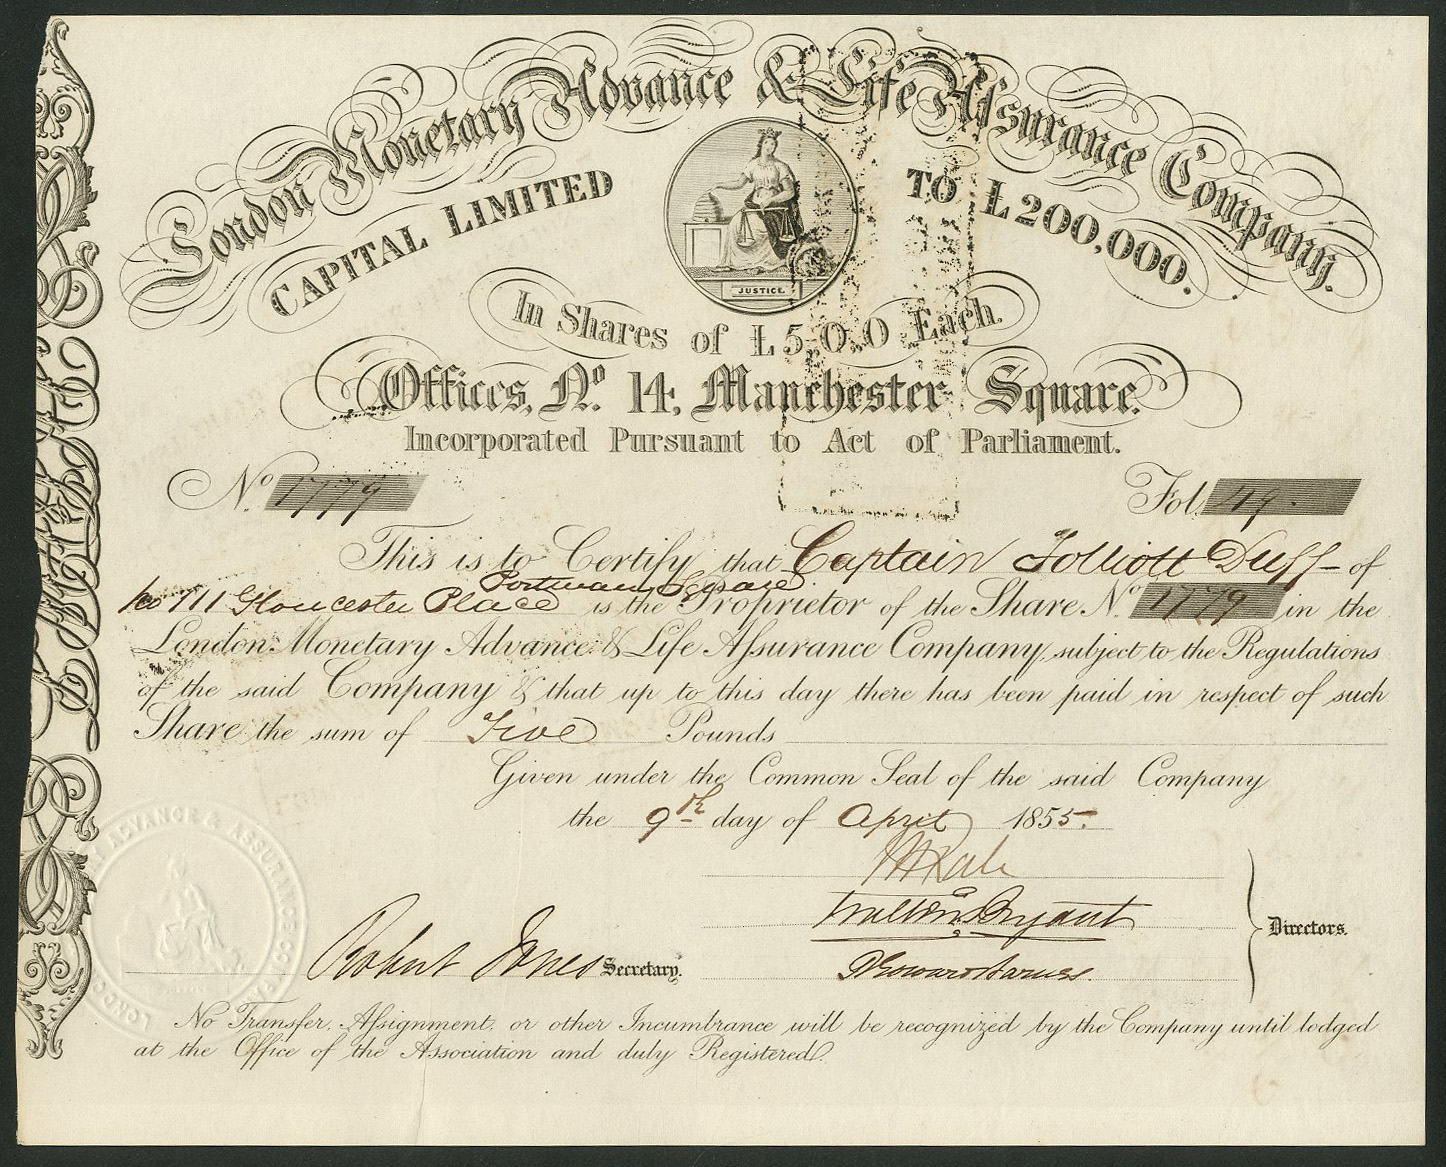 London Monetary Advance & Life Assurance Company.
CAPITAL LIMITED TO £200,000.
JUSTICE.
In Shares of £5,0,0 Each.
Offices, No. 14, Manchester Square.
Incorporated Pursuant to Act of Parliament.
No. 1779 Fol. 49.
This is to Certify that Captain Tolliott Duff of
No 111 Gloucester Place Portman Square is the Proprietor of the Share No. 1779 in the
London Monetary Advance & Life Assurance Company, subject to the Regulations
of the said Company & that up to this day there has been paid in respect of such
Share the sum of Five Pounds
Given under the Common Seal of the said Company
the 9th day of April 1855.
Bryant
Directors.
Robert Jones Secretary.
No Transfer, Assignment, or other Incumbrance will be recognized by the Company until lodged
at the Office of the Association and duly Registered.
ADVANCE & ASSURANCE CO